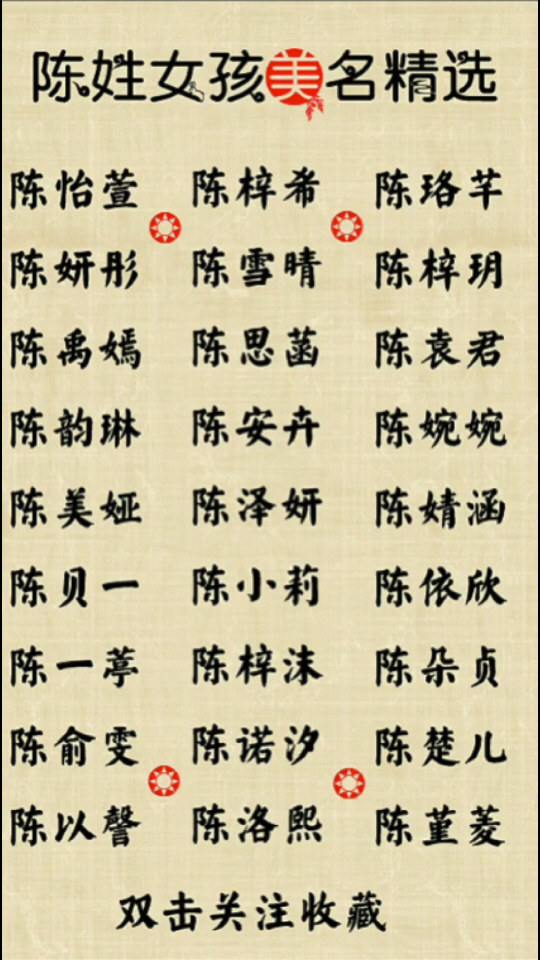 陈姓女孩美名精选
陈怡萱 陈梓希 陈珞芊
陈妍彤 陈雪晴 陈梓玥
陈禹嫣 陈思菡 陈袁君
陈韵琳 陈安卉 陈婉婉
陈美娅 陈泽妍 陈婧涵
陈贝一 陈小莉 陈依欣
陈一葶 陈梓沫 陈朵贞
陈俞雯 陈诺汐 陈楚儿
陈以馨 陈洛熙 陈堇菱
双击关注收藏